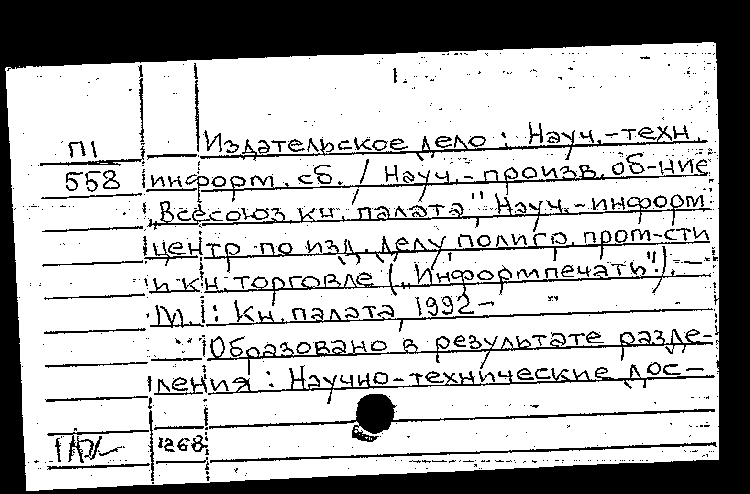 1.
П1 Издательское дело : Науч.-техн.
558 информ. сб. / Науч.-произв. об-ние
„Всесоюз. кн. палата", Науч.-информ.
центр по изд. делу, полигр. пром-сти
и кн. торговле („Информпечать"). –
М. : Кн. палата, 1992–
Образовано в результате разде-
ления : Научно-технические дос-
1268